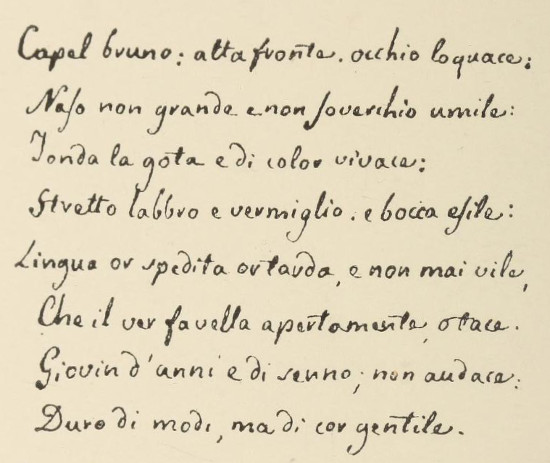 Capel bruno: alta fronte. occhio loquace:
Naso non grande e non soverchio umile:
Tonda la gota e di color vivace:
Stretto labbro e vermiglio. e bocca esile:
Lingua or spedita or tarda, e non mai vile,
Che il ver favella apertamente, o tace.
Giovin d'anni e di senno; non audace:
Duro di modi, ma di cor gentile.